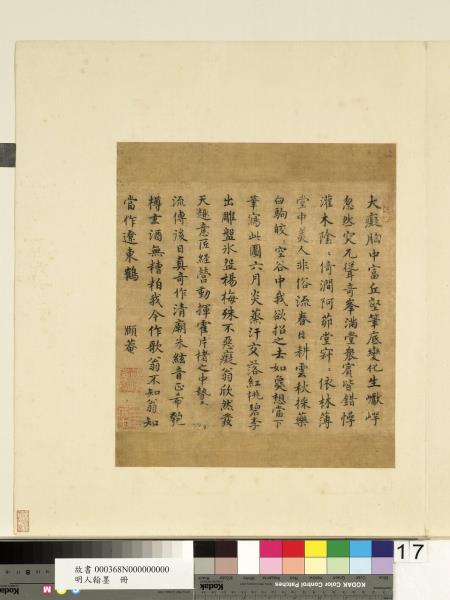 大癡胸中富丘壑筆底變化生巘崿
忽然突兀聳奇峯滿堂衆賓皆錯愕
灌木陰〻倚澗阿茆堂窈〻依林薄
堂中美人非俗流春日耕雲秋採藥
白駒皎〻空谷中我欲招之去如莫想當下
筆寫此圖六月炎蒸汗交落紅桃碧李
出雕盤氷盌楊梅殊不惡癡翁欣然發
天趣意匠經營動揮霍片楮之中
流傳後日真奇作清廟朱絃音正希匏
樽玄酒無糟粕我今作歌翁不知翁知
當作遼東鶴
順菴
17
Kodak
Kodak Color Control Patches
故書 000368N000000000
明人翰墨 冊